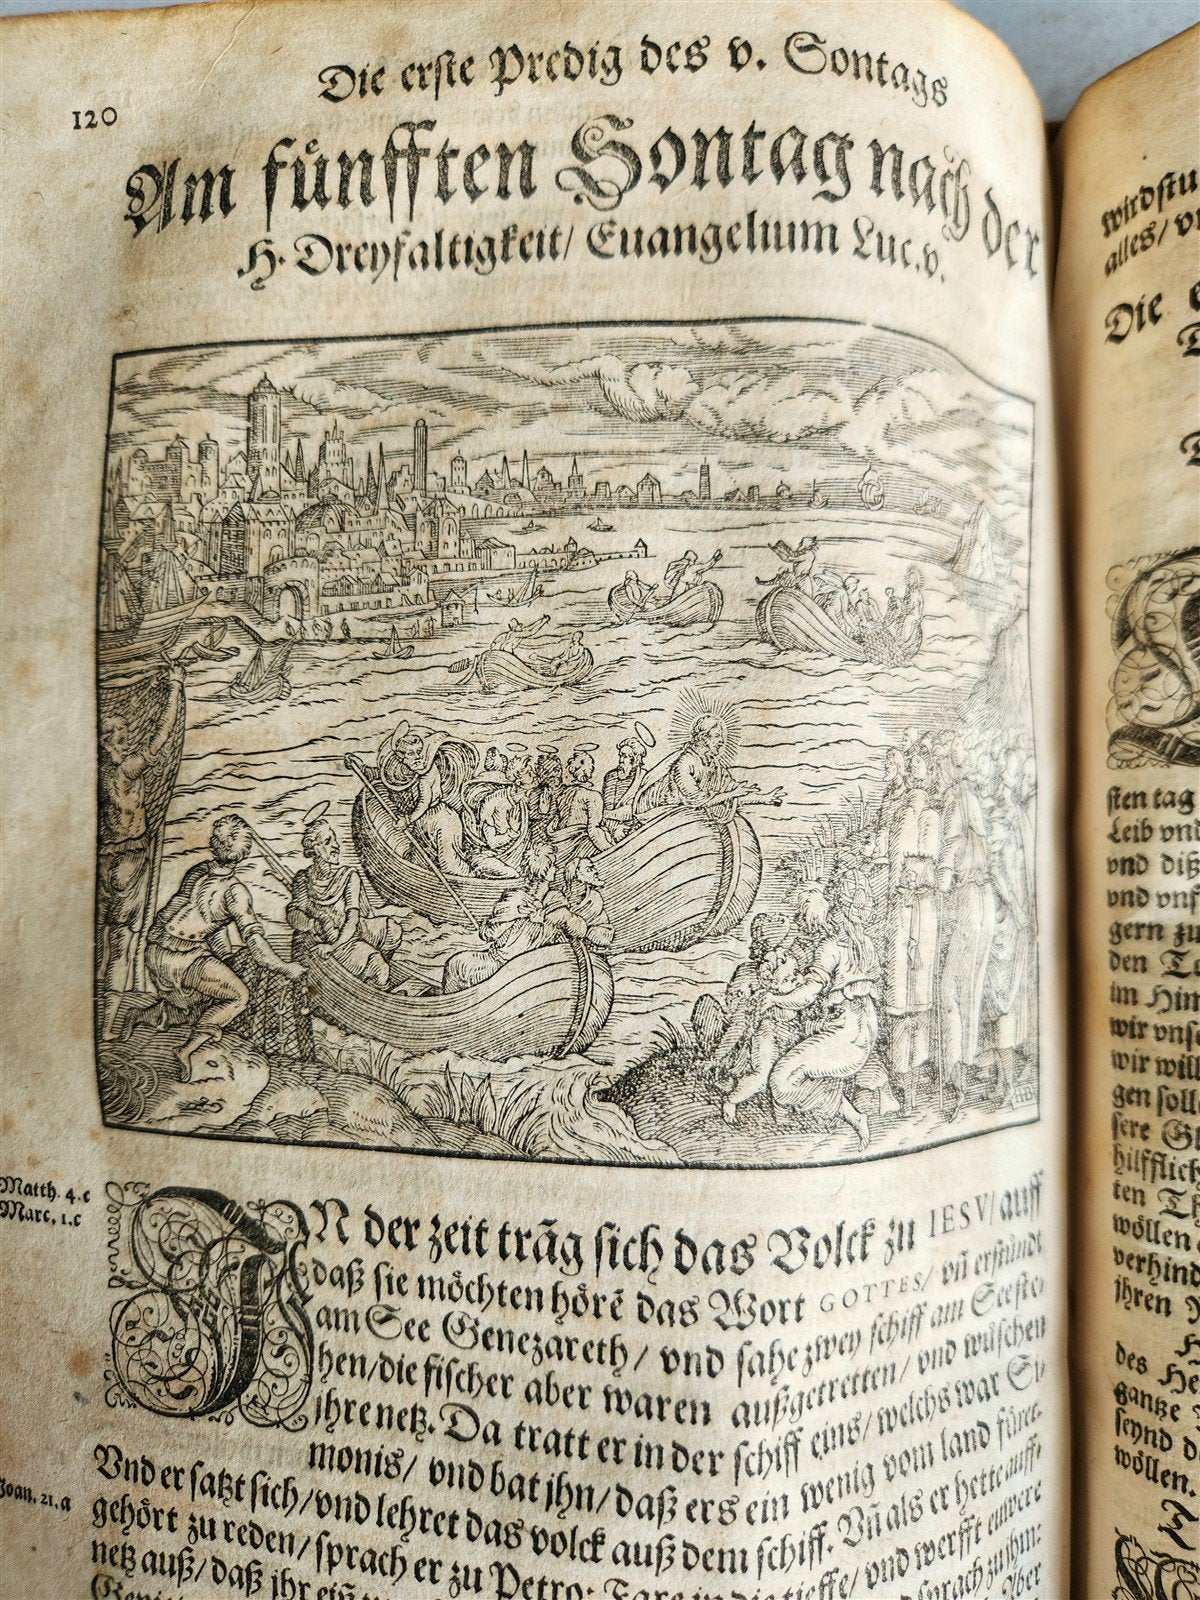 120
Die erste Predig des v. Sontags
Am fünfften Sontag nach der
H. Dreyfaltigkeit/ Euangelium Luc. v.
HB
Matth. 4. c
Marc. 1. c
IN der zeit träg sich das Volck zu IESV/ auff
daß sie möchten hörẽ das Wort GOTTES/ vñ er stündt
am See Genezareth/ vnd sahe zwey schiff am See ste-
hen/ die fischer aber waren außgetretten/ vnd wůschen
jhre netz. Da tratt er in der schiff eins/ welchs war Si-
monis/ vnd bat jhn/ daß ers ein wenig vom land fůret.
Joan. 21. a
Vnd er satzt sich/ vnd lehret das volck auß dem schiff. Vñ als er hette auff-
gehört zu reden/ sprach er zu Petro: Fare in die tieffe/ vnd werfft euwere
netz auß/ daß jhr
sprach zu jhm:
Aber
wirdt
alles/
Die
sten tag
Leib vnd
vnd diß
vnd
gern zu
den
im
wir vnse
wir will
gen solle
sere
hilfflich
ten
wöllen
verhind
jhren
des He
gantze
seynd d
wöllen.